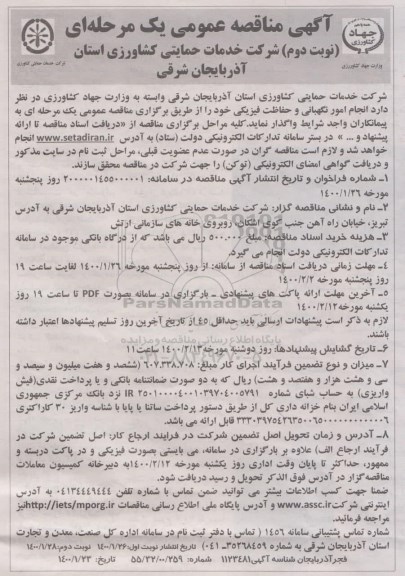 آگهی مناقصه عمومی یک مرحله‌ای
(نوبت دوم) شرکت خدمات حمایتی کشاورزی استان
آذربایجان شرقی
وزارت جهاد کشاورزی
شرکت خدمات حمایتی کشاورزی
شرکت خدمات حمایتی کشاورزی استان آذربایجان شرقی وابسته به وزارت جهاد کشاورزی در نظر
دارد انجام امور نگهبانی و حفاظت فیزیکی خود را از طریق برگزاری مناقصه عمومی یک مرحله ای به
پیمانکاران واجد شرایط واگذار نماید. کلیه مراحل برگزاری مناقصه از «دریافت اسناد مناقصه تا ارائه
پیشنهاد و ... » در بستر سامانه تدارکات الکترونیکی دولت (ستاد) به آدرس www.setadiran.ir انجام
خواهد شد و لازم است مناقصه گران در صورت عدم عضویت قبلی، مراحل ثبت نام در سایت مذکور
و دریافت گواهی امضای الکترونیکی (توکن) را جهت شرکت در مناقصه محقق سازند.
۱ـ شماره فراخوان و تاریخ انتشار آگهی مناقصه در سامانه: ۲۰۰۰۰۰۱۴۵۵۰۰۰۰۰۱ روز پنجشنبه
مورخه ۱۴۰۰/۱/۲۶
۲ـ نام و نشانی مناقصه گزار: شرکت خدمات حمایتی کشاورزی استان آذربایجان شرقی به آدرس
تبریز، خیابان راه آهن جنب کوی اشکان، روبروی خانه های سازمانی ارتش
۳ـ هزینه خرید اسناد مناقصه: مبلغ ۵۰۰.۰۰۰ ریال می باشد که از درگاه بانکی موجود در سامانه
تدارکات الکترونیکی دولت انجام می گیرد.
۴ـ مهلت زمانی دریافت اسناد مناقصه از سامانه: از روز پنجشنبه مورخه ۱۴۰۰/۱/۲۶ لغایت ساعت ۱۹
روز پنجشنبه مورخه ۱۴۰۰/۲/۲
۵ـ آخرین مهلت ارائه پاکت های پیشنهادی ـ بارگزاری در سامانه بصورت PDF تا ساعت ۱۹ روز
یکشنبه مورخه ۱۴۰۰/۲/۱۲
لازم به ذکر است پیشنهادات ارسالی باید حداقل ۴۵ از تاریخ آخرین روز تسلیم پیشنهادها اعتبار داشته
باشند.
۶ـ تاریخ گشایش پیشنهادها: روز دوشنبه مورخه ۱۴۰۰/۲/۱۳ ساعت ۱۱
۷ـ میزان و نوع تضمین فرآیند اجرای کار مبلغ: ۶۰۷.۳۳۸.۷۰۸ (ششصد و هفت میلیون و سیصد و
سی و هشت هزار و هفتصد و هشت) ریال که به دو صورت ضمانتنامه بانکی و یا پرداخت نقدی(فیش
واریزی) به حساب شبای شماره
نزد بانک مرکزی جمهوری
اسلامی ایران بنام خزانه داری کل از طریق دستور پرداخت ساتنا یا پایا با شناسه واریز ۳۰ کاراکتری
قابل ارائه می باشد.
۸ـ آدرس و زمان تحویل اصل تضمین شرکت در فرایند ارجاع کار: اصل تضمین شرکت در
فرآیند ارجاع الف) علاوه بر بارگزاری در سامانه، می بایستی بصورت فیزیکی و در پاکت دربسته و
ممهور، حداکثر تا پایان وقت اداری روز یکشنبه مورخه ۱۴۰۰/۲/۱۲به دبیرخانه کمیسیون معاملات
مناقصه‌گزار در آدرس فوق الذکر تحویل و رسید دریافت شود.
ضمنا جهت کسب اطلاعات بیشتر می توانید ضمن تماس با شماره تلفن ۰۴۱۳۴۴۴۹۴۴۴ به آدرس
اینترنتی شرکت www.assc.ir و آدرس پایگاه ملی اطلاع رسانی مناقصات http://iets/mporg.irنیز
مراجعه فرمائید.
شماره تماس پشتیبانی سامانه ۱۴۵۶ ( تماس با دفتر ثبت نام در سامانه اداره کل صنعت، معدن و تجارت
استان آذربایجان شرقی به شماره ۳۵۲۶۸۴۵۹ـ ۰۴۱) تاریخ انتشار نوبت اول: ۱۴۰۰/۱/۲۶ نوبت دوم: ۱۴۰۰/۱/۲۸
فجرآذربایجان شناسه آگهی ۱۱۲۳۴۸۱ شماره: ۵۵/۳۲/۰۰/۲۵۹ تاریخ: ۱۴۰۰/۱/۲۳
ParsNamadData
پایگاه اطلاع رسانی مناقصه و مزایده